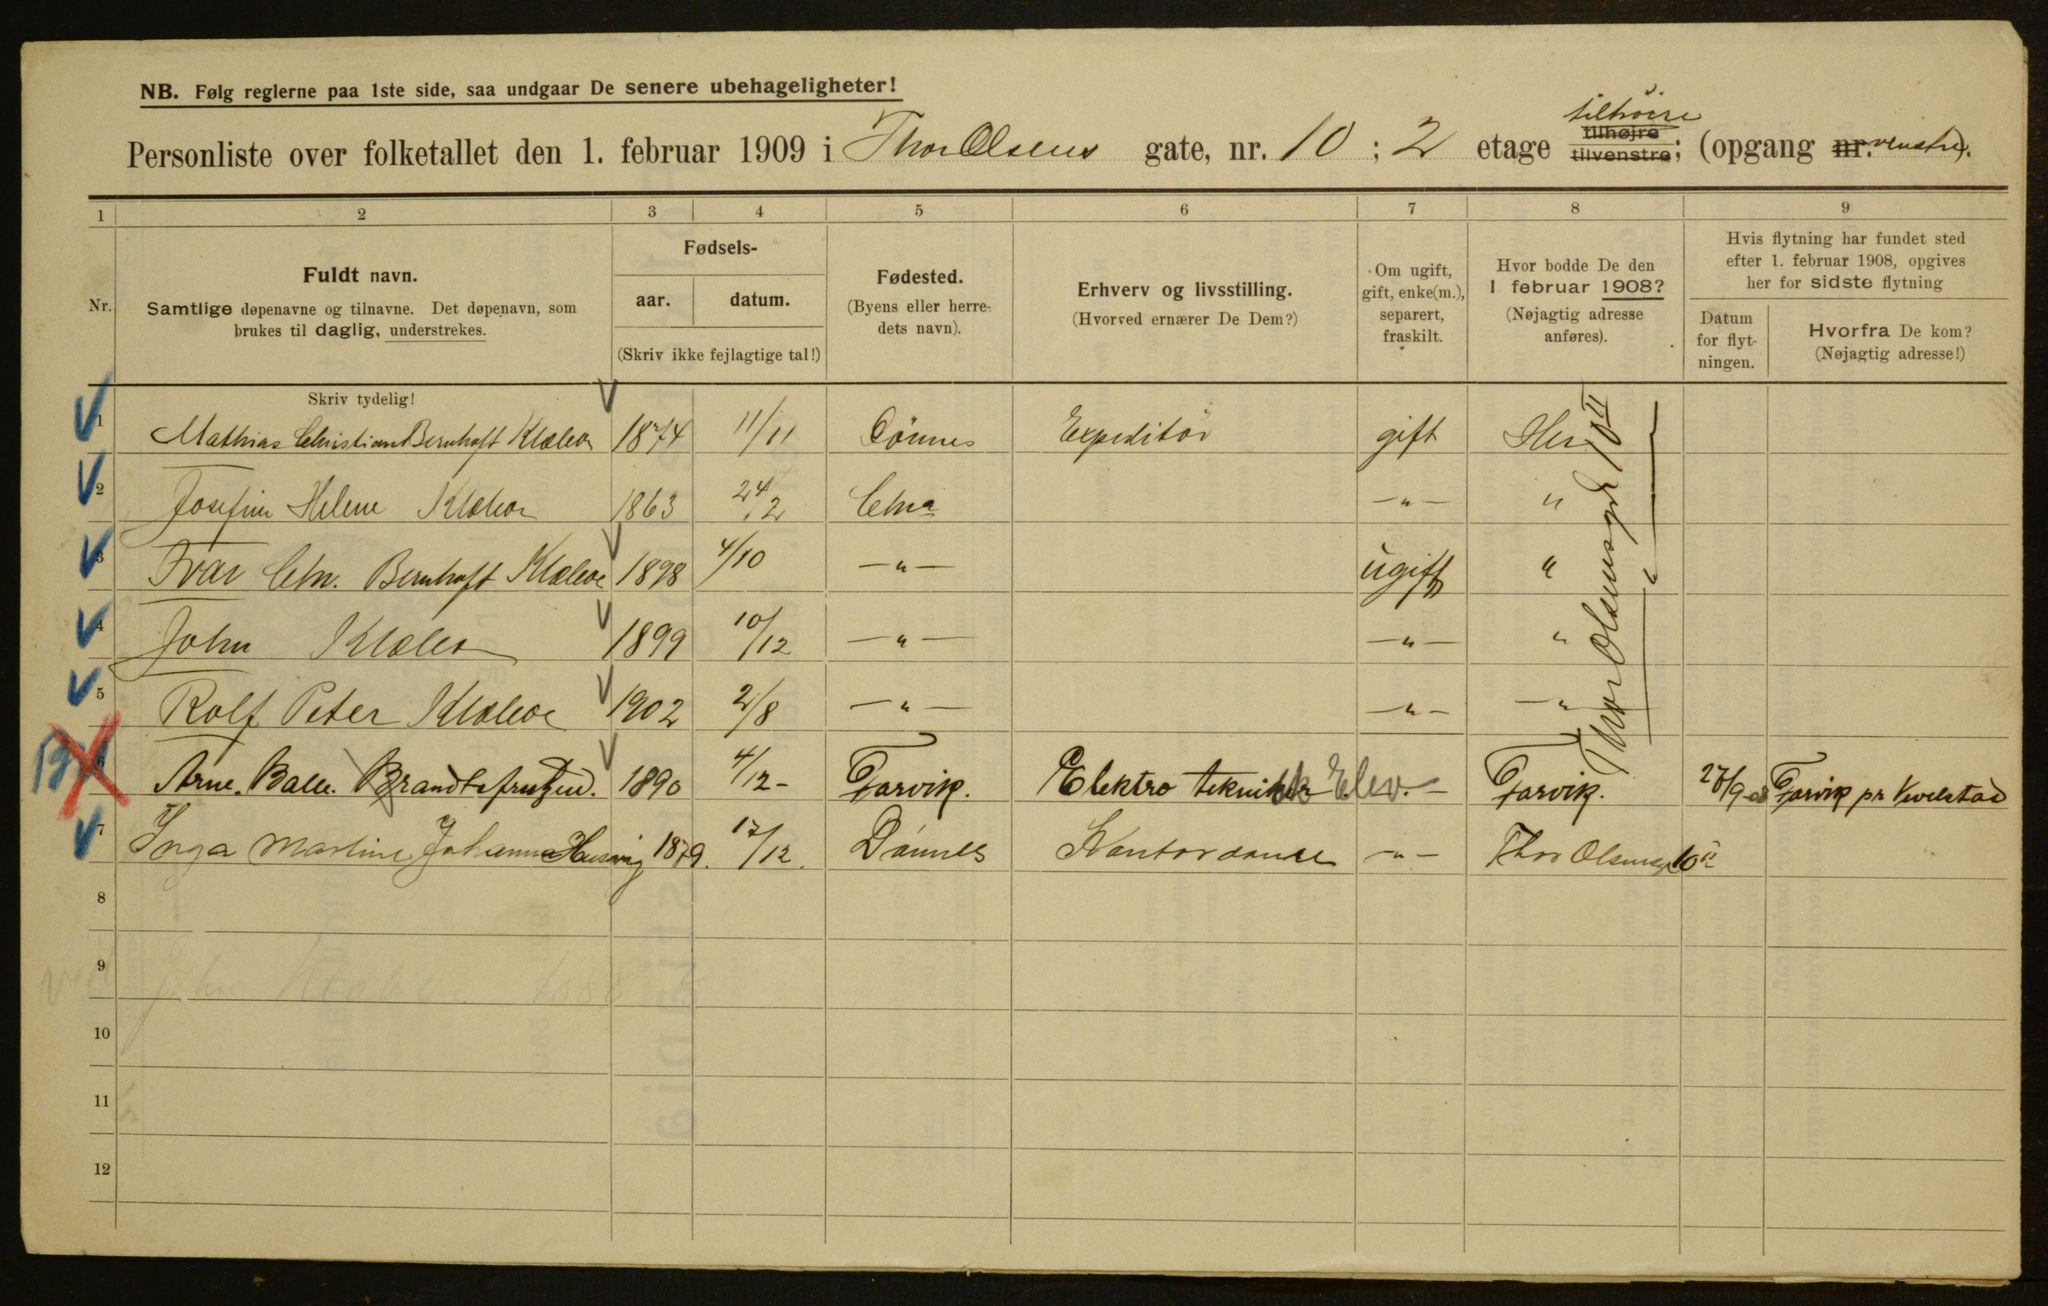 NB. Følg reglerne paa 1ste side, saa undgaar De senere ubehageligheter!
tilhöire
Personliste over folketallet den 1. februar 1909 i Thor Olsens gate, nr. 10 ; 2 etage tilhøjre tilvenstre; (opgang nr. venstre).
1 2 3 4 5 6 7 8 9
Nr.
Fuldt navn.
Samtlige døpenavne og tilnavne. Det døpenavn, som
brukes til daglig, understrekes.
Fødsels-
aar. datum.
(Skriv ikke fejlagtige tal!)
Fødested.
(Byens eller herre-
dets navn).
Erhverv og livsstilling.
(Hvorved ernærer De Dem?)
Om ugift,
gift, enke(m.),
separert,
fraskilt.
Hvor bodde De den
1 februar 1908?
(Nøjagtig adresse
anføres).
Hvis flytning har fundet sted
efter 1. februar 1908, opgives
her for sidste flytning
Datum
for flyt-
ningen.
Hvorfra De kom?
(Nøjagtig adresse!)
Skriv tydelig!
1 Mathias Christian Bernhoft Klæboe 1874 11/11 Dönnes Expeditör gift Her
2 Josefine Helene Klæboe 1863 24/2 Chra —"— "
3 Ivar Chr. Bernhoft Klæboe 1898 4/10 —"— ugift "
4 John Klæboe 1899 10/12 —"— —"— "
5 Rolf Peter Klæboe 1902 2/8 —"— —"— —"
Thor Olsensgd 10 II
6 Arne. Balle. 1890 4/12- Farvik. Elektro tekniker Elev. — Farvik. 27/9-08 Farvik pr
7 Inga Martine Johanne 1879. 17/12. Dønnes Kontordame —"— Thor Olsensg 10 II
8
9 John Klæboe 1888
10
11
12